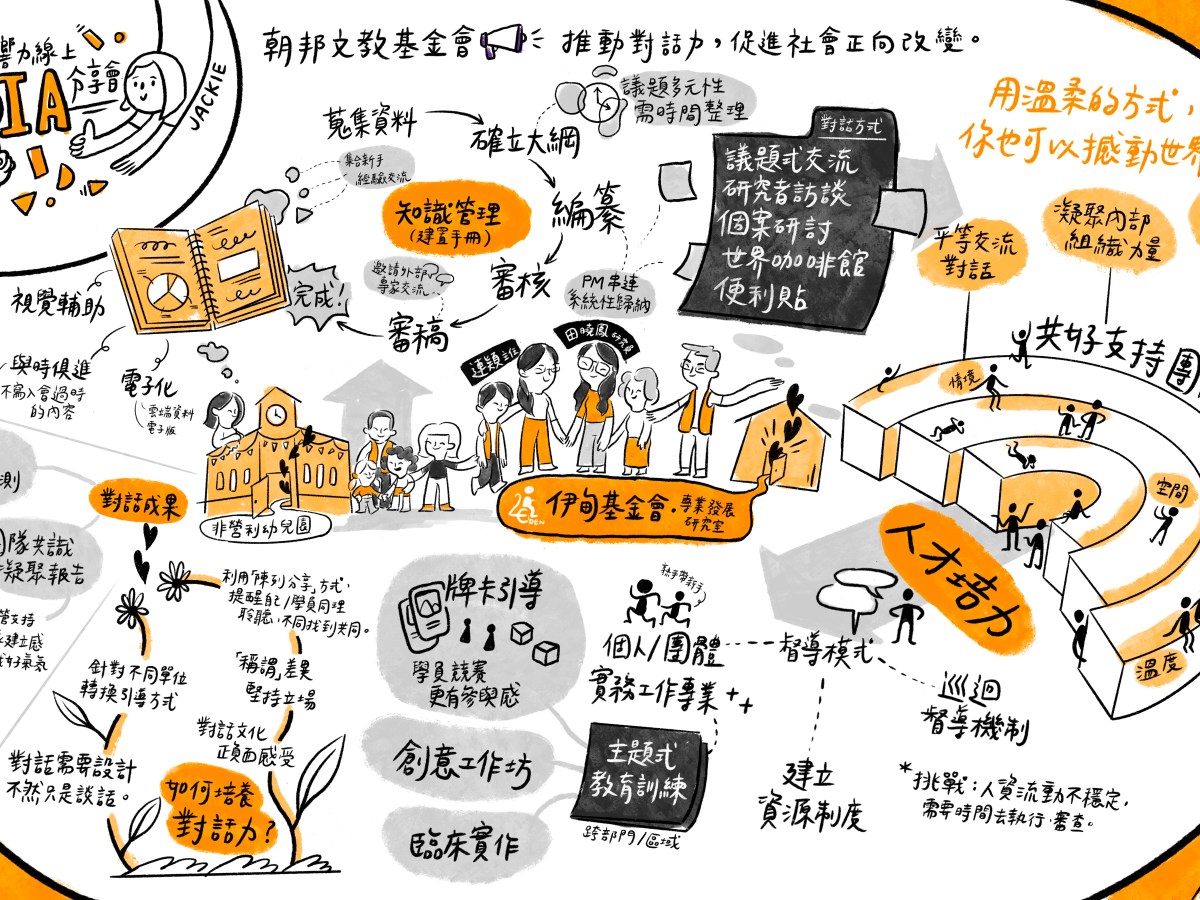 響力線上
DIA
分享會
JACKIE
朝邦文教基金會
推動對話力，促進社會正向改變。
用溫柔的方式，
你也可以撼動世界
蒐集資料
確立大綱
議題多元性
需時間整理
集合新手
經驗交流
知識管理
(建置手冊)
編纂
PM串連
系統性歸納
審核
邀請外部
專家交流
審稿
完成！
對話方式
議題式交流
研究者訪談
個案研討
世界咖啡館
便利貼
視覺輔助
與時俱進
不寫入會過時
的內容
電子化
雲端資料
電子版
連穎誰
田曉鳳 研究員
非營利幼兒園
EDEN
伊甸基金會·專業發展
研究室
平等交流
對話
凝聚內部
組織力量
共好支持團
情境
空間
溫度
人才培力
測
對話成果
團隊共識
凝聚報告
管支持
建立感
好氣氛
利用「陳列分享」方式，
提醒自己/學員同理
聆聽，不同找到共同。
針對不同單位
轉換引導方式
「稱謂」差異
堅持立場
對話文化
正負面感受
對話需要設計
不然只是談話。
如何培養
對話力？
牌卡引導
學員競賽
更有參與感
創意工作坊
臨床實作
熟手帶新手
個人/團體
實務工作專業++
主題式
教育訓練
跨部門/區域
督導模式
巡迴
督導機制
建立
資源制度
*挑戰：人資流動不穩定，
需要時間去執行、審查。